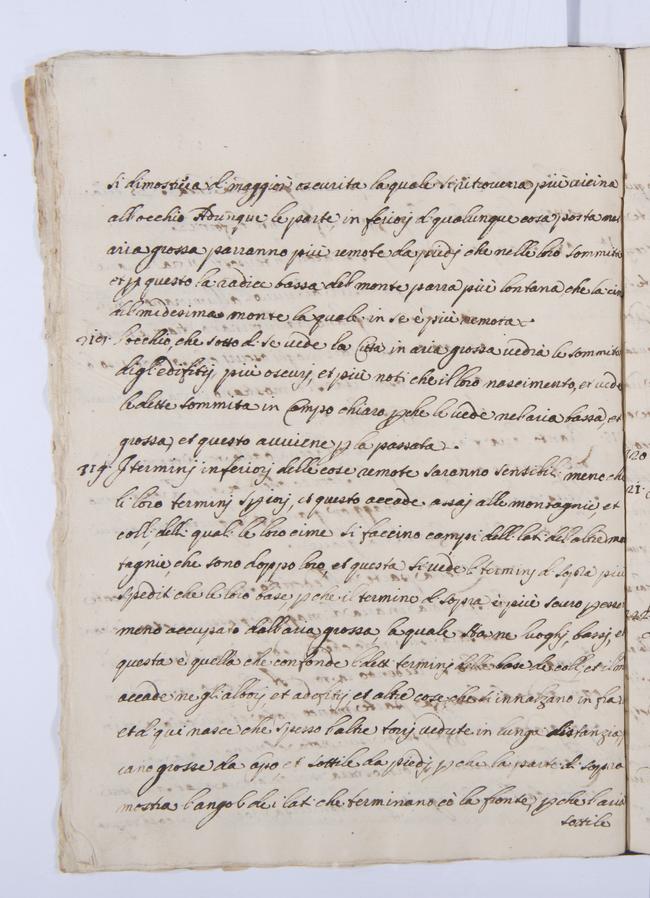 si dimostrera d. maggiori oscurita la quale si ritroverra più vicina
all'occhio Adunque le parte inferiorj d qualunque cosa posta nel
aria grossa parranno più remote da piedj che nelle loro sommita
et p questo la radice bassa del monte parra più lontana che la cim
del medesima monte la quale in se è più remota.
L'occhio che sotto d. se vede la Citta in aria grossa vedrà le sommita
degl'edifitij più oscurj, et più noti che il loro nascimento, et vede
le dette sommita in Campo chiaro pche le vede nel aria bassa, et
grossa, et questo avviene p la passata.
319. I terminj inferiorj delle cose remote saranno sensibili meno che
li loro terminj spiorj, et questo accade assaj alle montagnie et
colli, delli quali le loro cime si faccino campi delli lati del altre mo
tagnie, che sono doppo loro, et questa si vede li terminj d. sopra più
spediti che le loro base pche il termine d. sopra è più scuro p esse
meno accupato dall'aria grossa la quale sta ne luoghj bassj, et
questa è quella che confonde li detti terminj delle base de colli, et il
accade ne gl'alborj, et adefitij et altre cose che si innalzano in fra
et d. qui nasce che spesso l'altre torrj vedute in lunga distanzia,
vano grosse da capo, et sottile da piedj, pche la parte d. sopra
mostra l'angoli de i lati che terminano cò la fronte, pche l'aria
sottile
120
21.